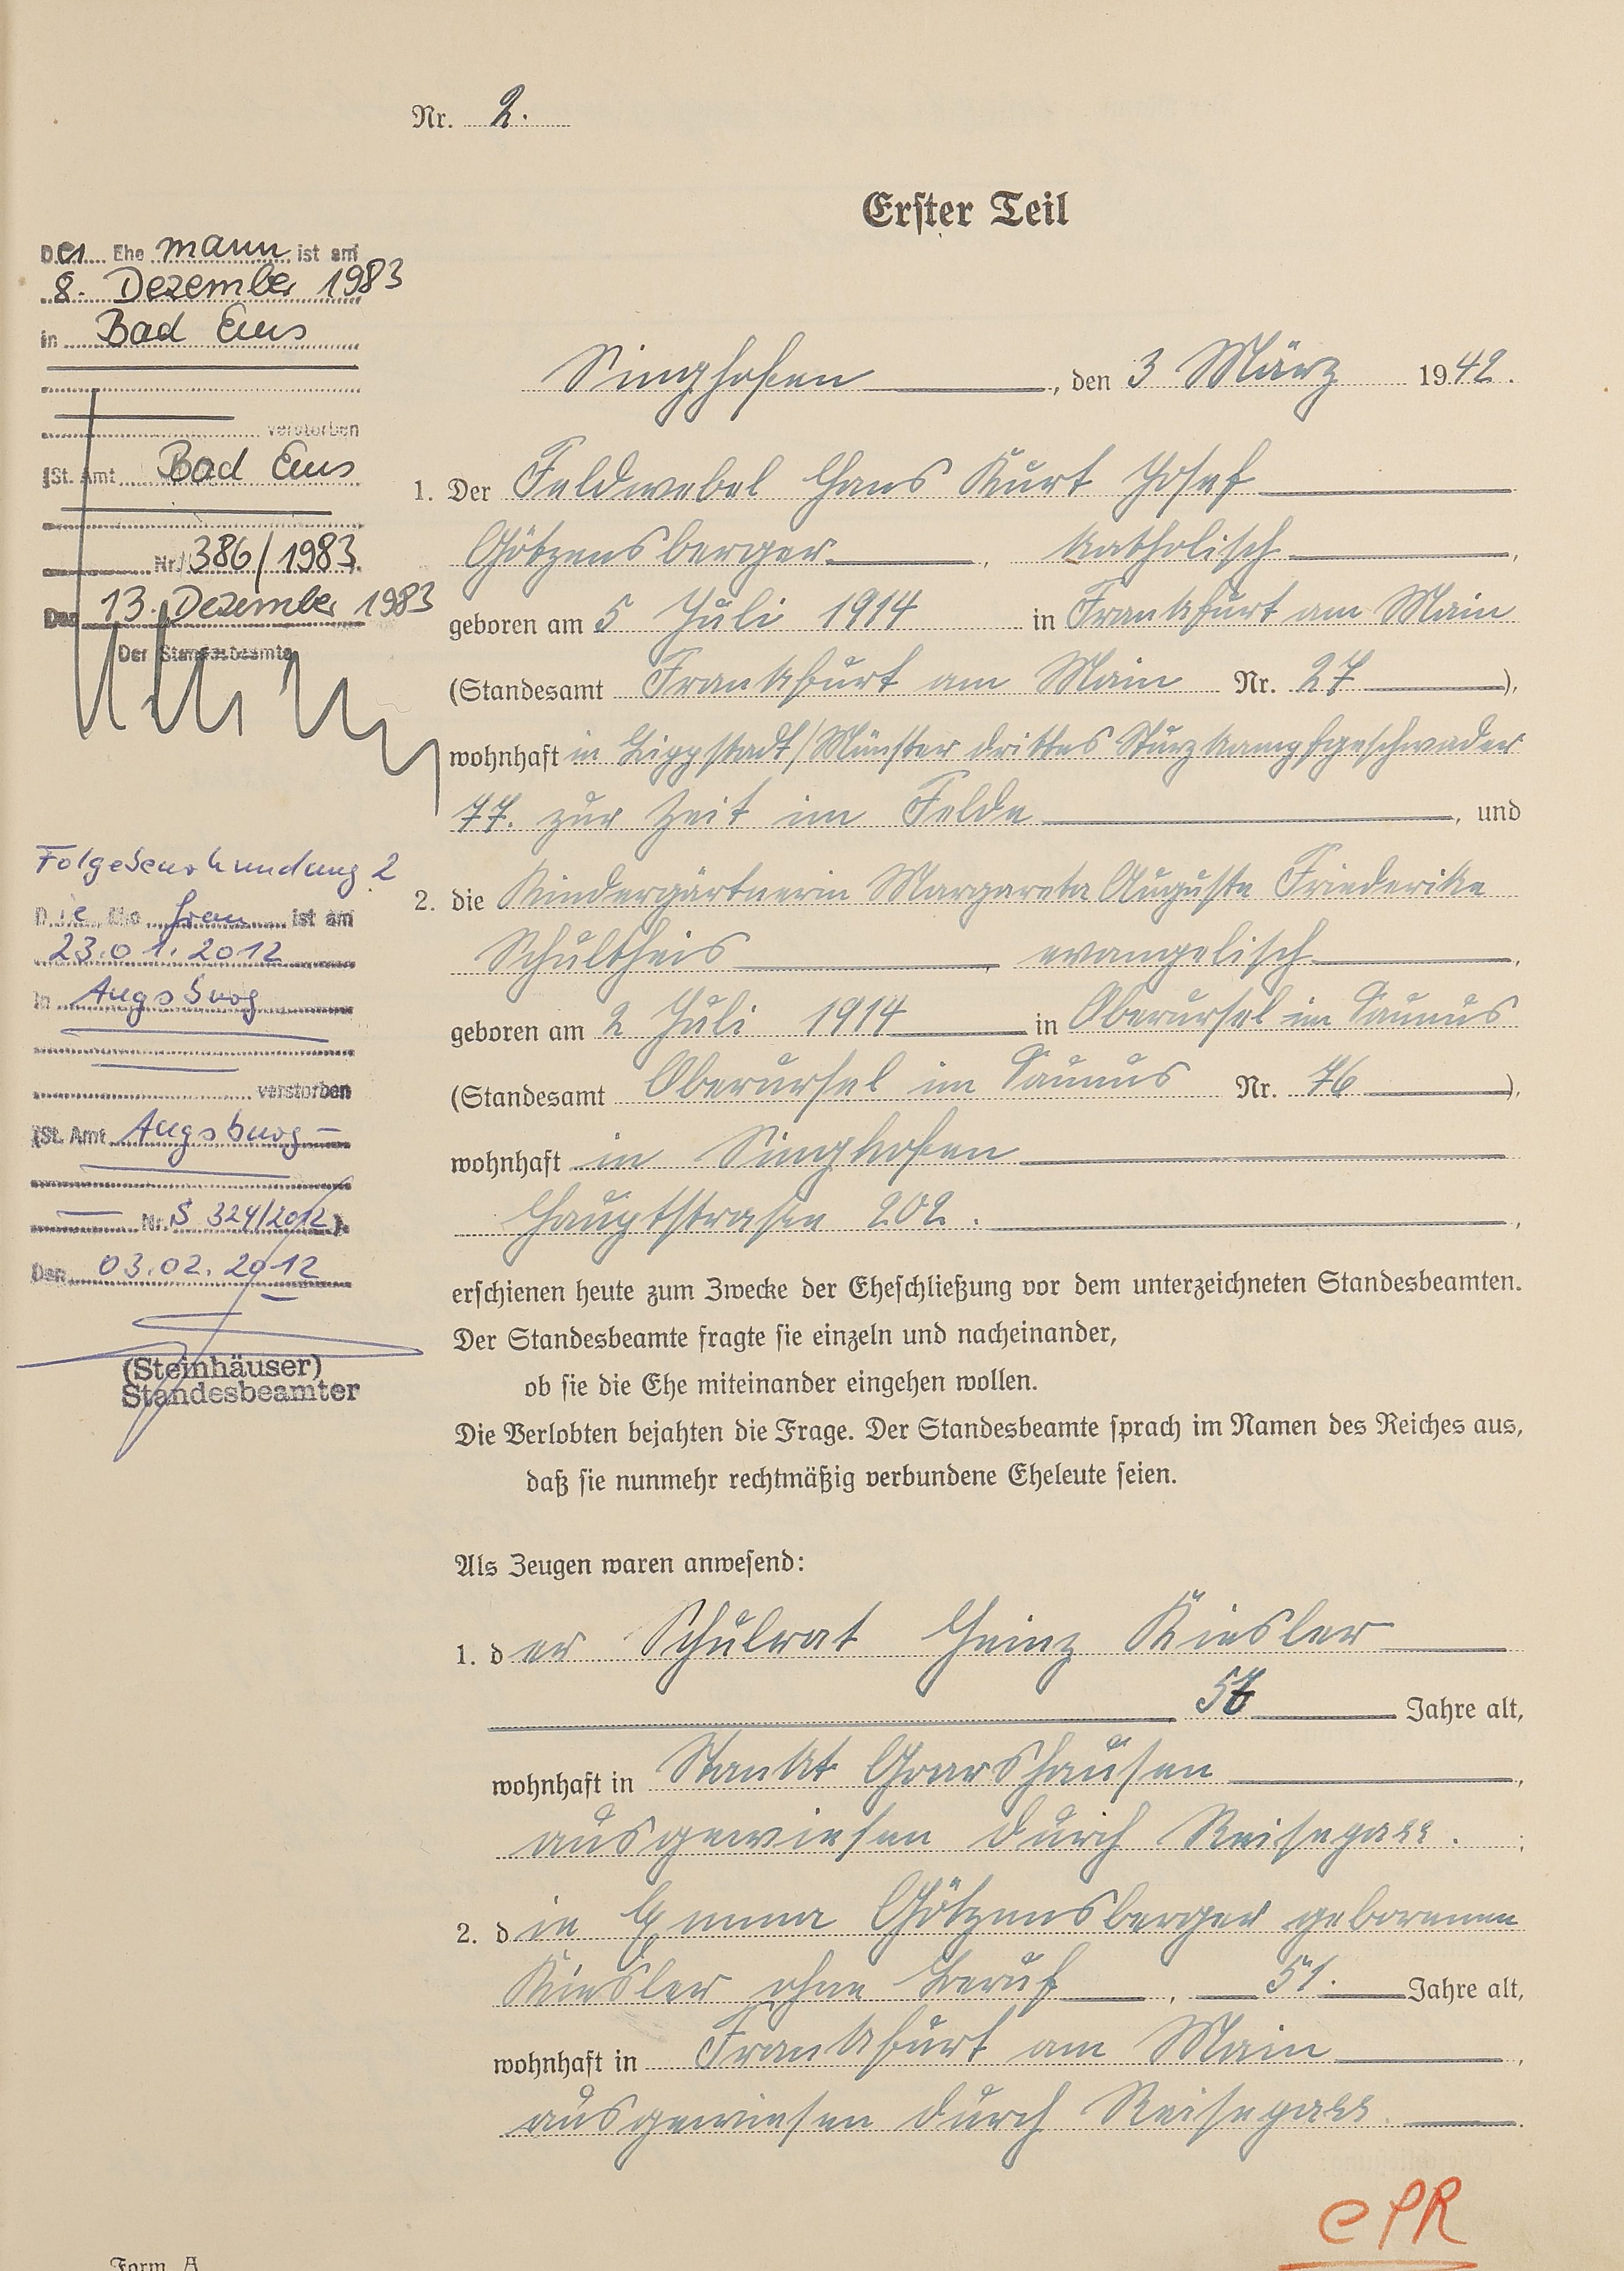 Nr. 2.
Erster Teil
Der Ehe mann ist am
8. Dezember 1983
in Bad Ems
verstorben
(St. Amt Bad Ems
Nr. 386/1983
Den 13. Dezember 1983
Der Standesbeamte
Folgebeurkundung 2
Die Ehe frau ist am
23.01.2012
in Augsburg
verstorben
(St. Amt Augsburg
Nr. S 324/2012).
Den 03.02.2012
(Steinhäuser)
Standesbeamter
Singhofen, den 3 März 1942.
1. Der Feldwebel Hans Kurt Josef
Götzensberger, katholisch,
geboren am 5 Juli 1914 in Frankfurt am Main
(Standesamt Frankfurt am Main Nr. 27),
wohnhaft in Lippstadt/Münster drittes Sturzkampfgeschwader
77. zur Zeit im Felde, und
2. die Kindergärtnerin Margareta Auguste Friederike
Schultheis, evangelisch,
geboren am 2 Juli 1914 in Oberursel im Taunus
(Standesamt Oberursel im Taunus Nr. 76),
wohnhaft in Singhofen
Hauptstrasse 202.,
erschienen heute zum Zwecke der Eheschließung vor dem unterzeichneten Standesbeamten.
Der Standesbeamte fragte sie einzeln und nacheinander,
ob sie die Ehe miteinander eingehen wollen.
Die Verlobten bejahten die Frage. Der Standesbeamte sprach im Namen des Reiches aus,
daß sie nunmehr rechtmäßig verbundene Eheleute seien.
Als Zeugen waren anwesend:
1. der Schulrat Heinz Kiesler
Jahre alt,
wohnhaft in Sankt Goarshausen,
ausgewiesen durch Reisepass.;
2. die Emma Götzensberger geborenen
Kiesler ohne Beruf, 51. Jahre alt,
wohnhaft in Frankfurt am Main,
ausgewiesen durch Reisepass.
ePR
Form. A